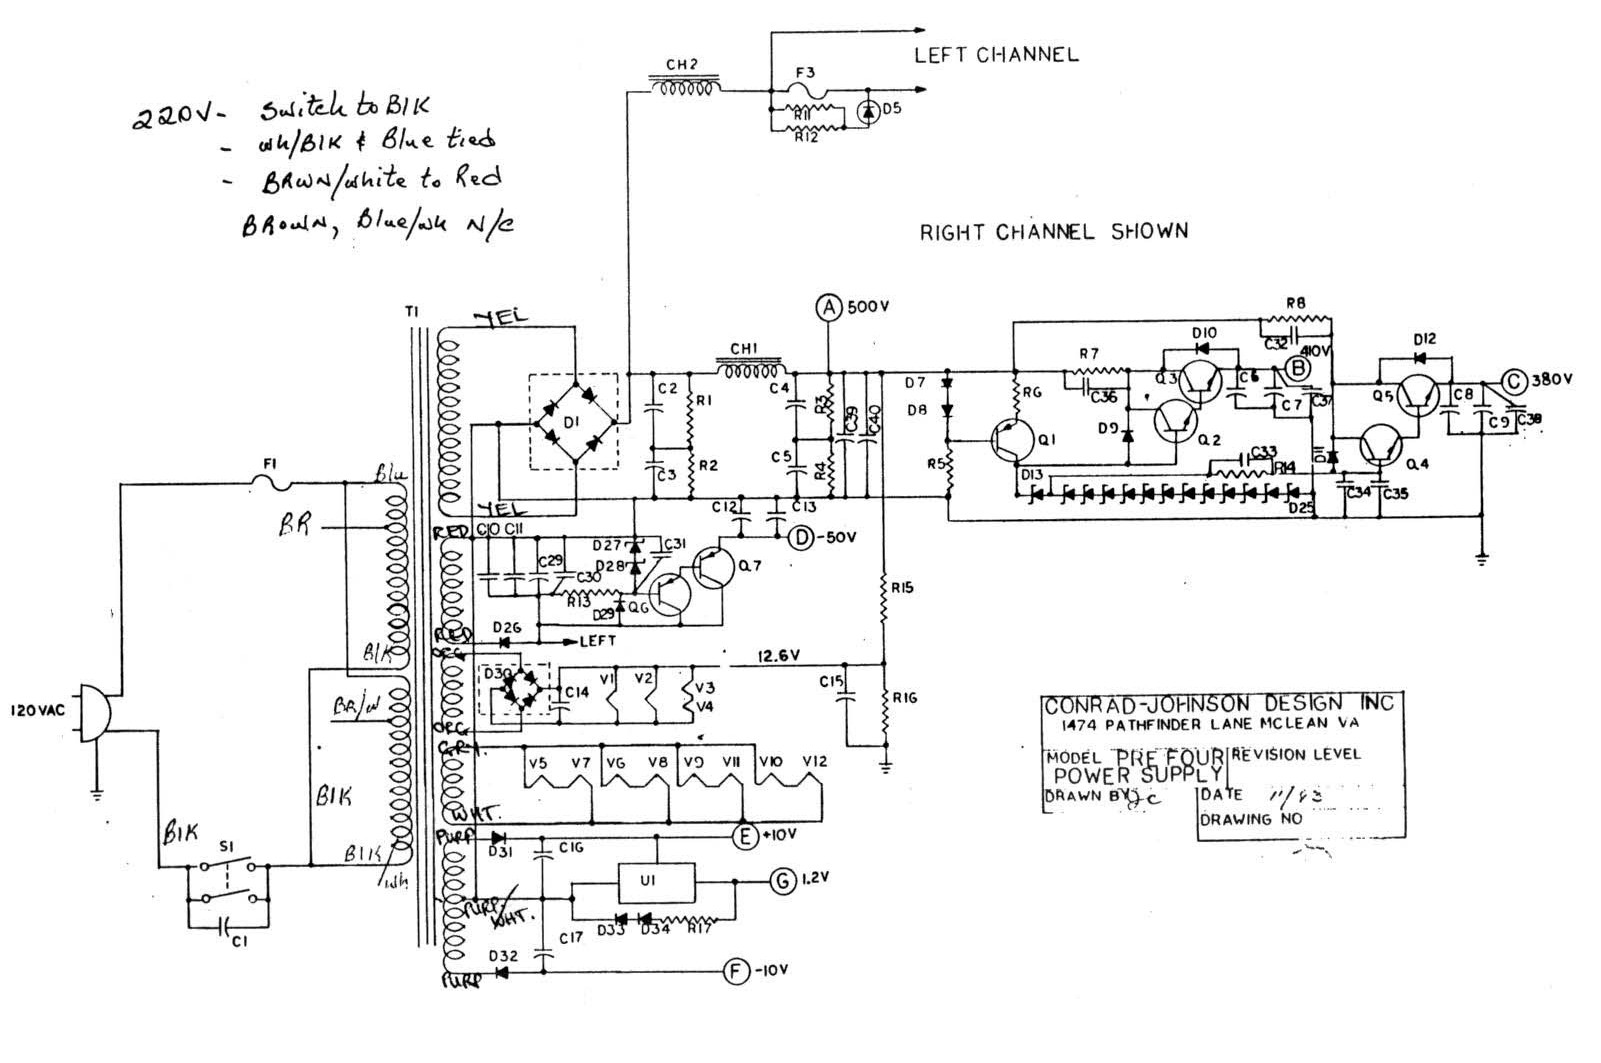 CH2
F3
LEFT CHANNEL
R11
R12
D5
220V- Switch to BlK
- wh/BlK & Blue tied
- BRWN/white to Red
BROWN, Blue/wh N/C
RIGHT CHANNEL SHOWN
T1
YEL
A 500V
CH1
D1
C2
R1
C3
R2
C4
R3
C39
C40
C5
R4
D7
D8
R5
R6
Q1
R7
C36
D9
D10
Q3
Q2
C6
C7
C37
B
410V
R8
C32
D12
Q5
C 380V
C8
C9
C38
Q4
D11
C33
R14
C34
C35
D13
D25
F1
Blu
BR
BlK
BR/W
BlK
BlK
BlK
Wh
S1
C1
120VAC
YEL
RED
C10 C11
C29
C30
R13
D27
D28
C31
D29
Q6
Q7
C12
C13
D -50V
RED
D26
LEFT
ORG
D30
C14
V1
V2
V3
V4
12.6V
C15
R15
R16
ORG
GRY.
V5 V7 V6 V8 V9 V11 V10 V12
WHT.
PURP
D31
C16
E +10V
U1
G 1.2V
PURP/WHT.
D33 D34 R17
C17
D32
F -10V
PURP
CONRAD-JOHNSON DESIGN INC
1474 PATHFINDER LANE MCLEAN VA
MODEL PRE FOUR
POWER SUPPLY
REVISION LEVEL
DRAWN BY JC
DATE 11/83
DRAWING NO